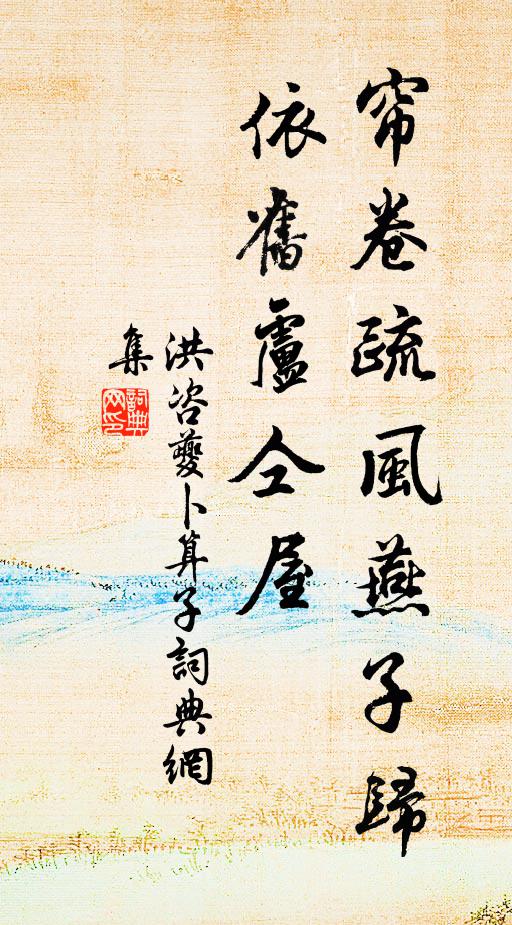 帘卷疏風燕子歸
依舊盧仝屋
洪咨夔卜算子詞典網
集
詞典
网印